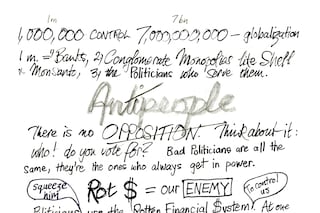 1m 7bn
1,000,000 CONTROL 7,000,000,000 – globalization
1 m. = 1) Banks, 2) Conglomerate Monopolies like Shell
& Monsanto, 3) the Politicians who serve them.
Antipeople
There is no OPPOSITION. Think about it:
who! do you vote for? Bad Politicians are all the
same, they're the ones who always get in power.
squeeze him
Rot $ = our ENEMY
To control us
Politicians use the Rotten Financial $ystem? At one